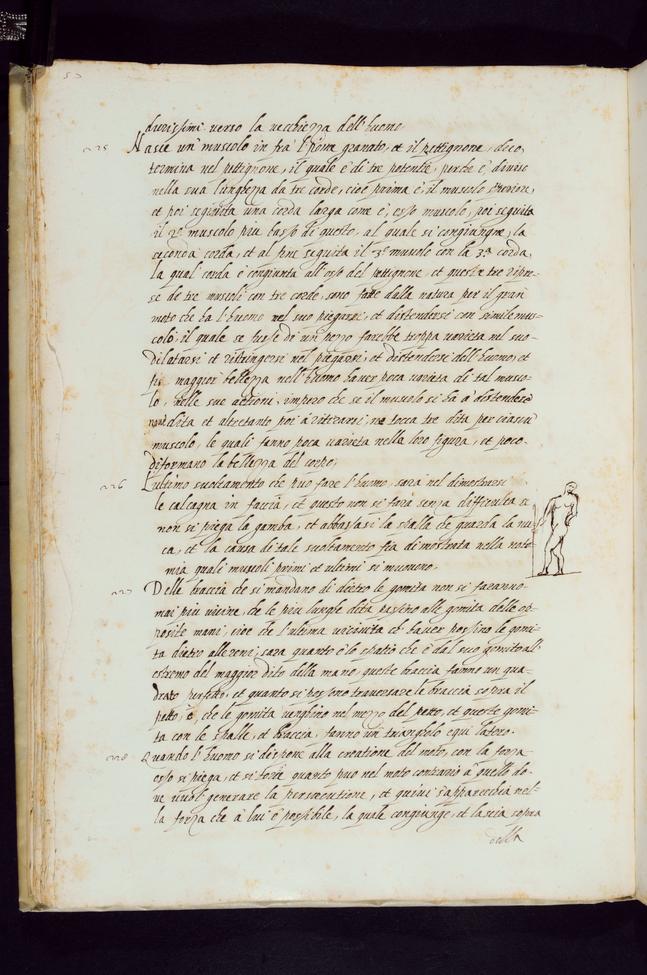 durissimi verso la vecchiezza dell'huomo
225 Nasce un' muscolo in fra l'pome granato, et il pettignone, dico,
termina nel pettignone, il quale è di tre potentie, perche è, diviso
nella sua lunghezza da tre corde, cioè prima è, il muscolo
et poi seguita una corda larga come è, esso muscolo, poi seguita
il 2º muscolo piu basso di questo, al quale si congiungne, la
seconda corda, et al fine seguita il 3º muscolo con la 3ª corda,
la qual corda è congiunta all'osso del pettignone, et queste tre ripre-
se de tre muscoli con tre corde, sono fatte dalla natura per il gran
moto che ha l'huomo nel suo piegarsi, et distendersi con simile mus-
coli, il quale se fusse di un' pezzo farebbe troppa varieta nel suo
dilatarsi et ristringersi nel piegarsi, et distendersi dell'huomo, et
fia maggior bellezza nell'huomo haver poca varieta di tal musco-
lo, nelle sue actioni, impero che se il muscolo si ha à distendere
nove dita et altretanto poi à ritrarsi, ne tocca tre dita per ciascun
muscolo, le quali fanno poca varieta nella loro figura, et poco
diformano la bellezza del corpo;
226 L'ultimo svoltamento che puo fare l'huomo, sara nel dimostrarsi
le calcagna in faccia, et questo non si fara senza difficulta se
non si piega la gamba, et abbassasi la spalla che guarda la nu-
ca, et la causa di tale svoltamento fia dimostrata nella noto-
mia quali muscoli primi et ultimi si muovono.
227 Delle braccia che si mandano di dietro le gomita non si faranno
mai piu vicine, che le piu lunghe dita passino alle gomita delle op-
posite mani, cioè che l'ultima vicinita ch' haver possino le gomi-
ta dietro alle reni, sara quanto è lo spatio che è dal suo gomito all'
estremo del maggior dito della mano, queste braccia fanno un qua-
drato perfetto, et quanto si possono traversare le braccia sopra il
petto, è, che le gomita venghino nel mezzo del petto, et queste gomi-
ta con le spalle, et braccia, fanno un' triangolo equi latero.
228 Quando l'huomo si dispone alla creatione del moto, con la forza
esso si piega, et si torce quanto puo nel moto contrario à quello do-
ve vuol generare la percuttione, et quivi s'apparecchia nel-
la forza che à lui è possibile, la quale congiunge, et lascia sopra
della